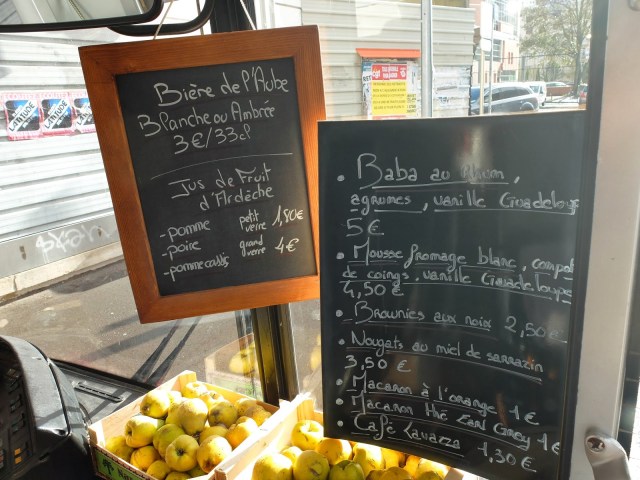 Bière de l'Aube
Blanche ou Ambrée
3€/33cl
Jus de Fruit
d'Ardèche
-pomme
-poire
-pomme cassis
petit verre 1,90€
grand verre 4€
• Baba au rhum,
agrumes, vanille Guadeloupe
5€
• Mousse fromage blanc, compot
de coings, vanille Guadeloupe
4,50€
• Brownies aux noix 2,50€
• Nougats au miel de sarrazin
3,50€
• Macaron à l'orange 1€
• Macaron thé Earl Grey 1€
• Café Lavazza 1,30€